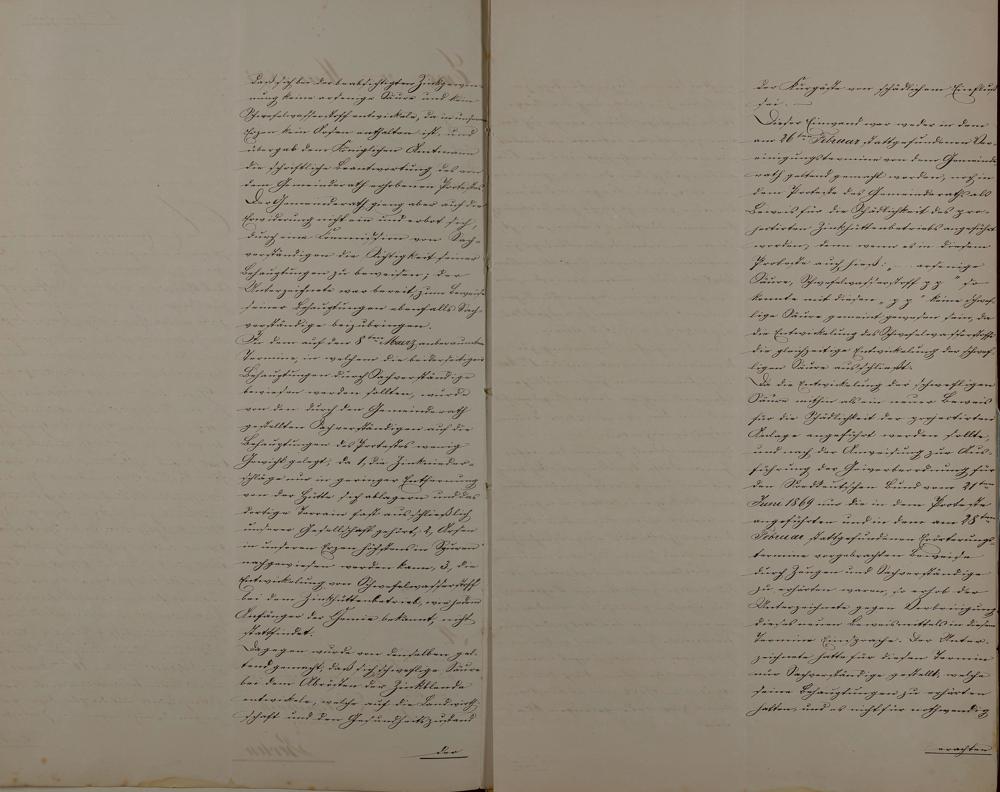 daß sich bei der beabsichtigten Zinkgewin-
nung keine arsenige Säure und kein
Schwefelwasserstoff entwickele, da in unseren
Erzen kein Arsen enthalten ist, und
übergab dem Königlichen Amtmann
die schriftliche Beantwortung des von
dem Gemeinderath erhobenen Protestes.
Der Gemeinderath gieng aber auf die
Erwiderung nicht ein und erbot sich,
durch eine Commission von Sach-
verständigen die Richtigkeit seiner
Behauptungen zu beweisen; der
Unterzeichnete war bereit, zum Beweise
seiner Behauptungen ebenfalls Sach-
verständige beizubringen.
In dem auf den 8ten Maerz anberaumten
Termine, in welchem die beiderseitigen
Behauptungen durch Sachverständige
bewiesen werden sollten, wurde
von den durch den Gemeinderath
gestellten Sachverständigen auf die
Behauptungen des Protestes wenig
Gewicht gelegt, da 1, die Zinknieder-
schläge nur in geringer Entfernung
von der Hütte sich ablagern und das
dortige Terrain fast ausschließlich
unserer Gesellschaft gehört, 2, Arsen
in unseren Erzen höchstens in Spuren
nachgewiesen werden kann, 3, die
Entwickelung von Schwefelwasserstoff
bei dem Zinkhüttenbetrieb, wie jedem
Anfänger der Chemie bekannt, nicht
stattfindet.
Dagegen wurde von denselben gel-
tend gemacht, daß sich schweflige Säure
bei dem Abrösten der Zinkblende
entwickele, welche auf die Landwirth-
schaft und den Gesundheitszustand
der
der Kurgäste von schädlichem Einfluß
sei. —
Dieser Einwand war weder in dem
am 26ten Februar stattgefundenen Ver-
einigungstermine von dem Gemeinde
rath geltend gemacht worden, noch in
dem Proteste des Gemeinderaths als
Beweis für die Schädlichkeit des pro-
jectirten Zinkhüttenbetriebs angeführt
worden, denn wenn es in diesem
Proteste auch hieß: „ .... arsenige
Säure, Schwefelwasserstoff p p " so
konnte mit diesen „ p p " keine schwef-
lige Säure gemeint gewesen sein, da
die Entwickelung des Schwefelwasserstoffs
die gleichzeitige Entwickelung der schwef-
ligen Säure ausschließt.
Da die Entwickelung der schwefligen
Säure mithin als ein neuer Beweis
für die Schädlichkeit der projectirten
Anlage angeführt werden sollte,
und nach der Anweisung zur Aus-
führung der Gewerbeordnung für
den Norddeutschen Bund vom 21ten
Juni 1869 nur die in dem Proteste
angeführten und in dem am 28ten
Februar stattgefundenen Erörterungs-
termine vorgebrachten Beweise
durch Zeugen und Sachverständige
zu erhärten waren, so erhob der
Unterzeichnete gegen Beibringung
dieses neuen Beweismittels in diesem
Termine Einsprache. Der Unter-
zeichnete hatte für diesen Termin
nur Sachverständige gestellt, welche
seine Behauptungen zu erhärten
hatten, und es nicht für nothwendig
erachten